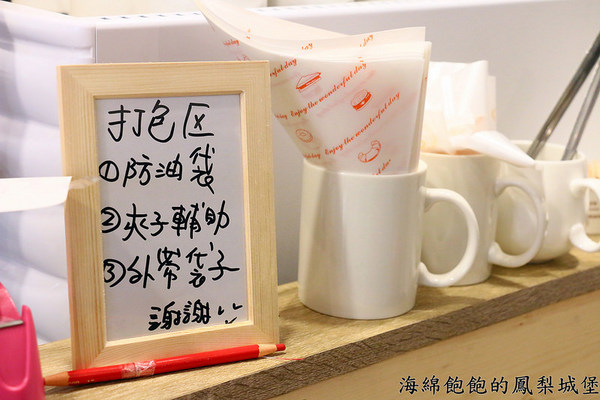 打包区
①防油袋
②夾子輔助
③外帶袋子
謝謝
Enjoy the wonderful day
Enjoy the wonderful day
海綿飽飽的鳳梨城堡